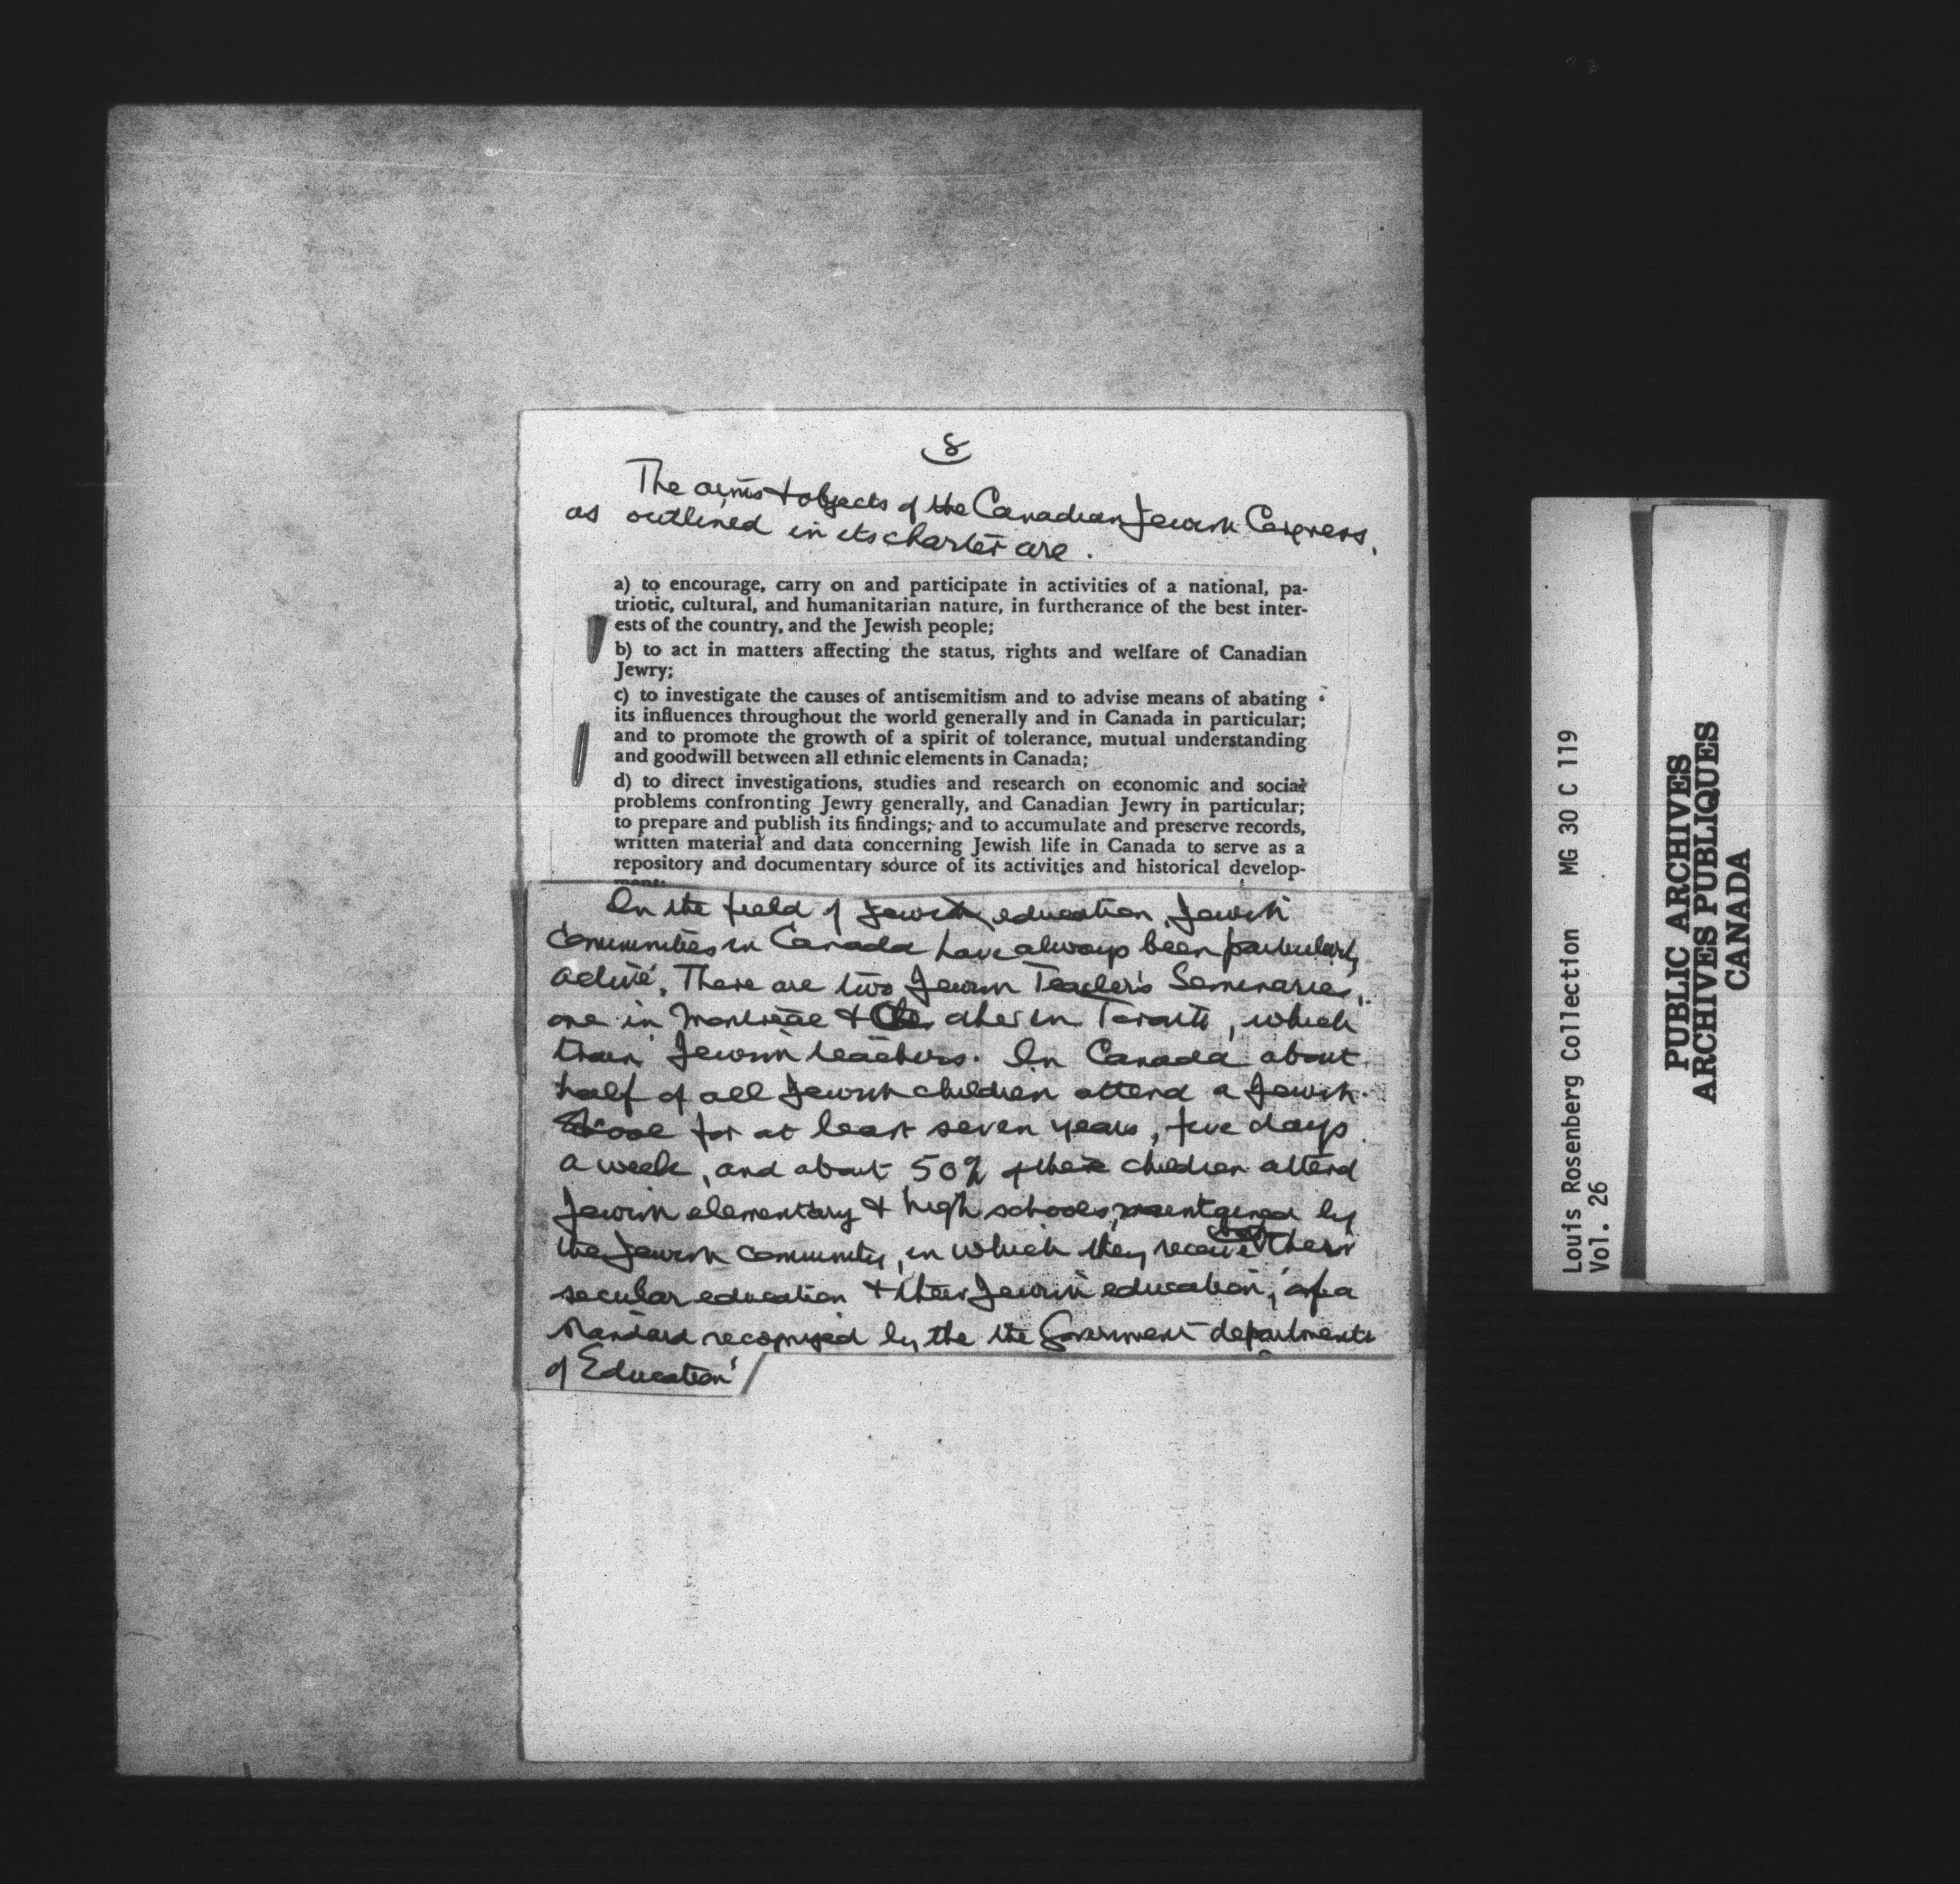 8
The aims & objects of the Canadian Jewish Congress,
as outlined in its charter are.
a) to encourage, carry on and participate in activities of a national, pa-
triotic, cultural, and humanitarian nature, in furtherance of the best inter-
ests of the country, and the Jewish people;
b) to act in matters affecting the status, rights and welfare of Canadian
Jewry;
c) to investigate the causes of antisemitism and to advise means of abating
its influences throughout the world generally and in Canada in particular;
and to promote the growth of a spirit of tolerance, mutual understanding
and goodwill between all ethnic elements in Canada;
d) to direct investigations, studies and research on economic and social
problems confronting Jewry generally, and Canadian Jewry in particular;
to prepare and publish its findings; and to accumulate and preserve records,
written material and data concerning Jewish life in Canada to serve as a
repository and documentary source of its activities and historical develop-
In the field of Jewish education, Jewish
communities in Canada have always been particularly
active. There are two Jewish Teacher's Seminaries,
one in Montreal & other in Toronto, which
train Jewish teachers. In Canada about
half of all Jewish children attend a Jewish
School for at least seven years, five days
a week, and about 50% of these children attend
Jewish elementary & high schools, maintained by
the Jewish community, in which they receive both their
secular education & their Jewish education, of a
standard recognized by the the Government departments
of Education
Louis Rosenberg Collection MG 30 C 119
Vol. 26
PUBLIC ARCHIVES
ARCHIVES PUBLIQUES
CANADA